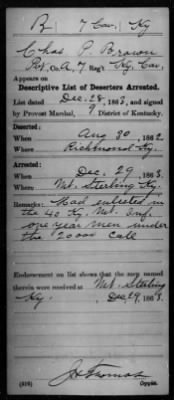 B | 7 Cav. | Ky
Chas P. Brown
Pvt, Co. A, 7 Reg't Ky. Cav.
Appears on
Descriptive List of Deserters Arrested.
List dated Dec. 28, 1863, and signed
by Provost Marshal, 9 District of Kentucky.
Deserted:
When Aug 30, 1862
Where Richmond Ky.
Arrested:
When Dec. 29, 1863
Where Mt. Sterling Ky.
Remarks: Had enlisted in
the 40 Ky. Mt. Inf.
one year men under
the 20000 call
Endorsement on list shows that the men named
therein were received at Mt. Sterling
Ky. Dec 29, 1863.
J. Thomas
(319) Copyist.